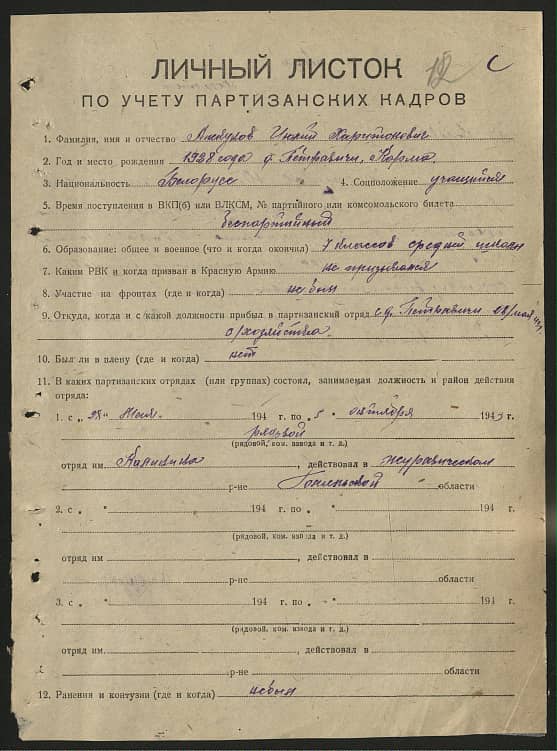 12 С
ЛИЧНЫЙ ЛИСТОК
ПО УЧЕТУ ПАРТИЗАНСКИХ КАДРОВ
1. Фамилия, имя и отчество Харитонович
2. Год и место рождения 1928 года д. Петравичи, Корма
3. Национальность Белорусс 4. Соцположение учащийся
5. Время поступления в ВКП(б) или ВЛКСМ, № партийного или комсомольского билета
беспартийный
6. Образование: общее и военное (что и когда окончил) 7 классов средней школы
7. Каким РВК и когда призван в Красную Армию не призывался
8. Участие на фронтах (где и когда) не был
9. Откуда, когда и с какой должности прибыл в партизанский отряд с д. Петравичи
с/хозяйства
10. Был ли в плену (где и когда) нет
11. В каких партизанских отрядах (или группах) состоял, занимаемая должность и район действия
отряда:
1. с „ " 194 г. по „5 " октября 1943 г.
рядовой
(рядовой, ком. взвода и т. д.)
отряд им. Калинина, действовал в Журавическом
р-не Гомельской области
2. с „ " 194 г. по „ " 194 г.
(рядовой, ком. взвода и т. д.)
отряд им. , действовал в
р-не области
3. с „ " 194 г. по „ " 194 г.
(рядовой, ком. взвода и т. д.)
отряд им. , действовал в
р-не области
12. Ранения и контузии (где и когда) не был